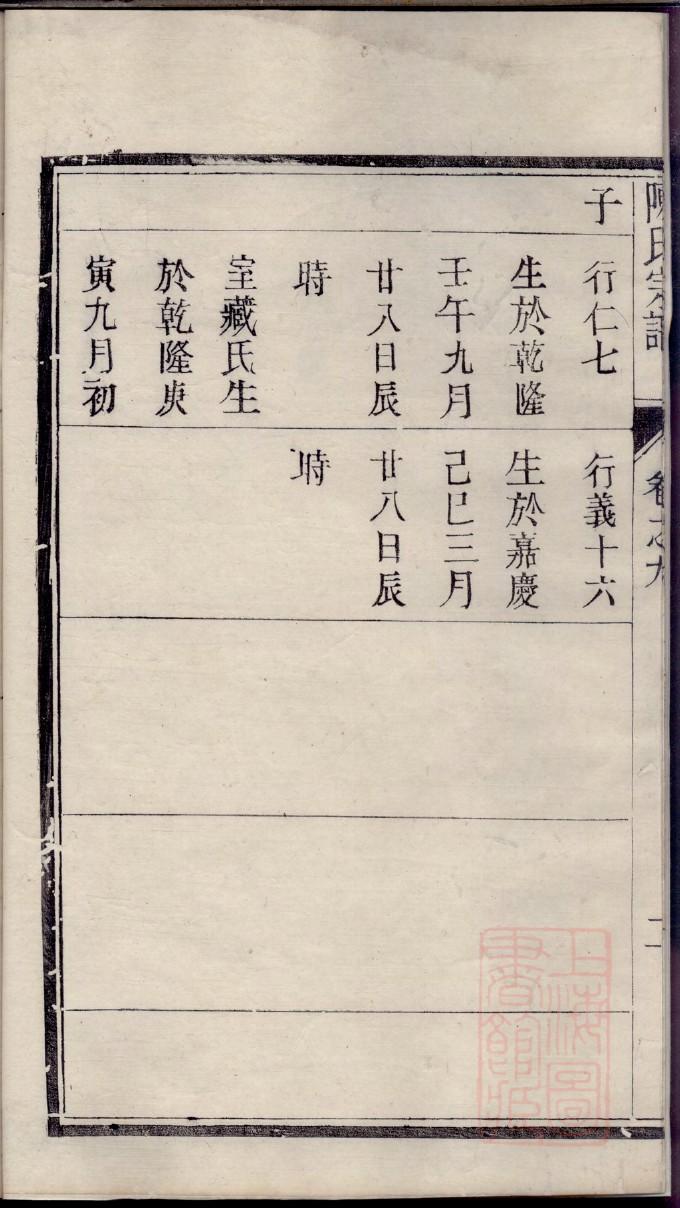 陳氏宗譜
卷之九
二
子
行仁七
生於乾隆
壬午九月
廿八日辰
時
室藏氏生
於乾隆庚
寅九月初
行義十六
生於嘉慶
己巳三月
廿八日辰
時
上海圖
書館藏